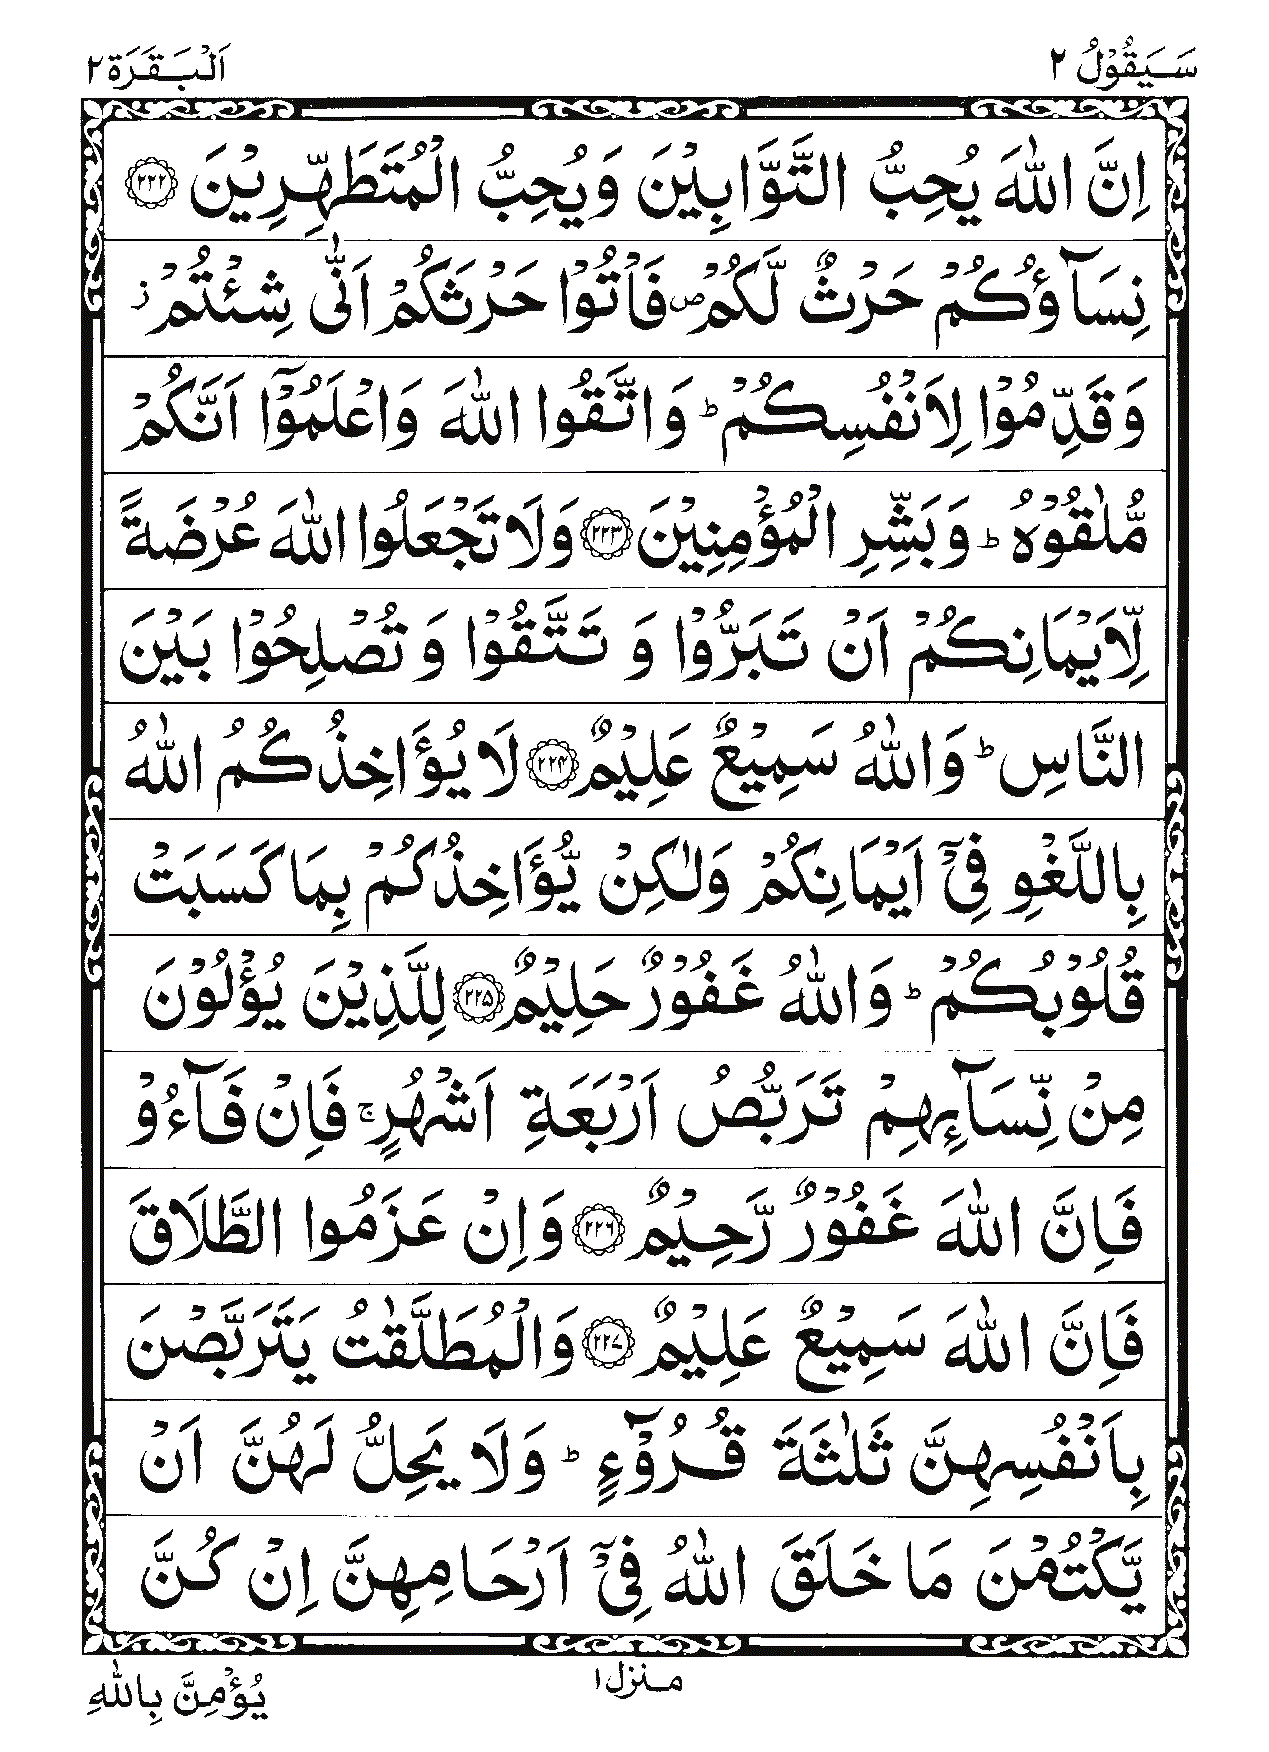 سَيَقُوْلُ ٢
اَلْبَقَرَة ٢
اِنَّ اللّٰهَ يُحِبُّ التَّوَّابِيْنَ وَيُحِبُّ الْمُتَطَهِّرِيْنَ ﴿٢٢٢﴾
نِسَآؤُكُمْ حَرْثٌ لَّكُمْ ۪ فَاْتُوْا حَرْثَكُمْ اَنّٰى شِئْتُمْ ؗ
وَقَدِّمُوْا لِاَنْفُسِكُمْ ؕ وَاتَّقُوا اللّٰهَ وَاعْلَمُوْۤا اَنَّكُمْ
مُّلٰقُوْهُ ؕ وَبَشِّرِ الْمُؤْمِنِيْنَ ﴿٢٢٣﴾ وَلَا تَجْعَلُوا اللّٰهَ عُرْضَةً
لِّاَيْمَانِكُمْ اَنْ تَبَرُّوْا وَ تَتَّقُوْا وَ تُصْلِحُوْا بَيْنَ
النَّاسِ ؕ وَاللّٰهُ سَمِيْعٌ عَلِيْمٌ ﴿٢٢٤﴾ لَا يُؤَاخِذُكُمُ اللّٰهُ
بِاللَّغْوِ فِيْۤ اَيْمَانِكُمْ وَلٰكِنْ يُّؤَاخِذُكُمْ بِمَا كَسَبَتْ
قُلُوْبُكُمْ ؕ وَاللّٰهُ غَفُوْرٌ حَلِيْمٌ ﴿٢٢٥﴾ لِلَّذِيْنَ يُؤْلُوْنَ
مِنْ نِّسَآءِهِمْ تَرَبُّصُ اَرْبَعَةِ اَشْهُرٍ ۚ فَاِنْ فَآءُوْ
فَاِنَّ اللّٰهَ غَفُوْرٌ رَّحِيْمٌ ﴿٢٢٦﴾ وَاِنْ عَزَمُوا الطَّلَاقَ
فَاِنَّ اللّٰهَ سَمِيْعٌ عَلِيْمٌ ﴿٢٢٧﴾ وَالْمُطَلَّقٰتُ يَتَرَبَّصْنَ
بِاَنْفُسِهِنَّ ثَلٰثَةَ قُرُوْٓءٍ ؕ وَلَا يَحِلُّ لَهُنَّ اَنْ
يَّكْتُمْنَ مَا خَلَقَ اللّٰهُ فِيْۤ اَرْحَامِهِنَّ اِنْ كُنَّ
منزل ١
يُؤْمِنَّ بِاللّٰهِ